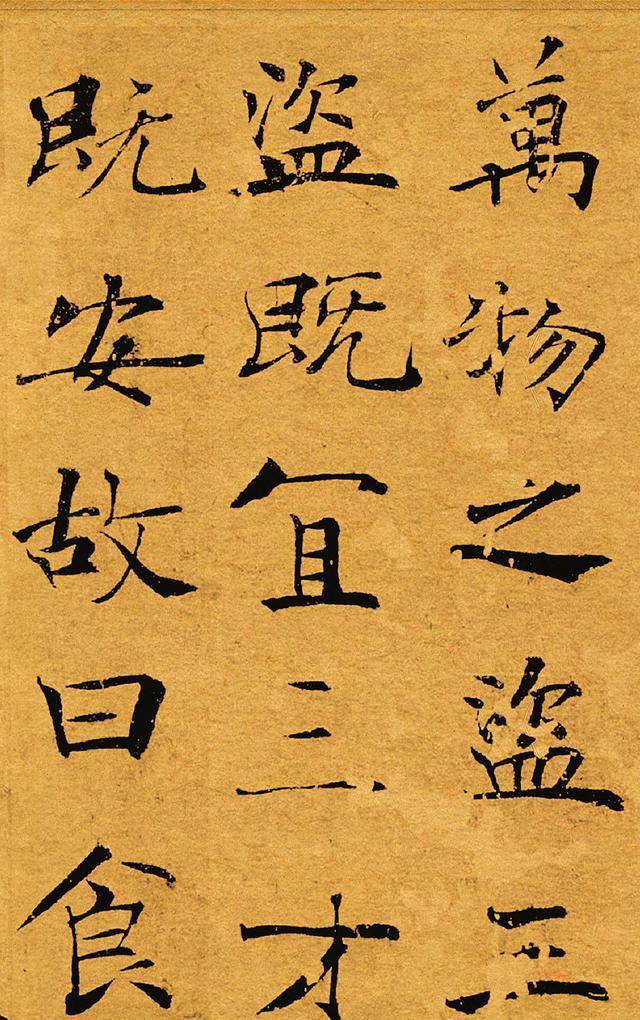 萬物之盜三
盜既冝三才
既安故曰食